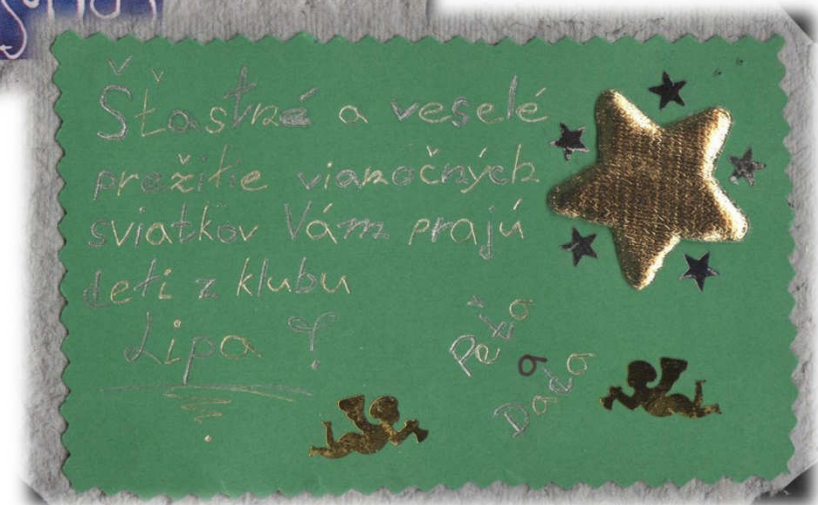 Šťastné a veselé
prežitie vianočných
sviatkov Vám prajú
deti z klubu
Lipa
a